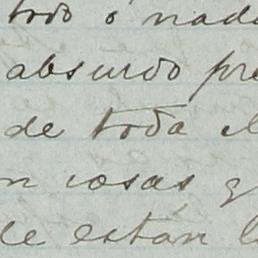 todo ó nada
absurdo pre
de toda el
n cosas q
de están l